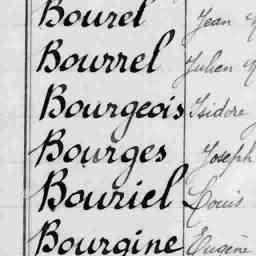 Bourel Jean
Bourrel Julien
Bourgeois Isidore
Bourges Joseph
Bouriel Louis
Bourgine Eugène